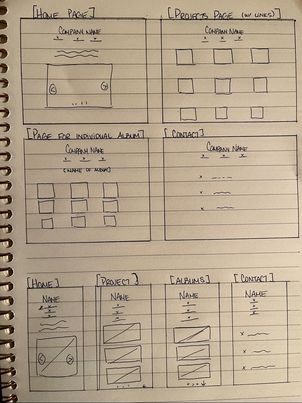 [HOME PAGE]
COMPANY NAME
[PROJECTS PAGE (w/ LINES)]
COMPANY NAME
[PAGE FOR INDIVIDUAL ALBUM]
COMPANY NAME
[NAME OF ALBUM]
[CONTACT]
COMPANY NAME
[HOME]
NAME
[PROJECT]
NAME
[ALBUMS]
NAME
[CONTACT]
NAME